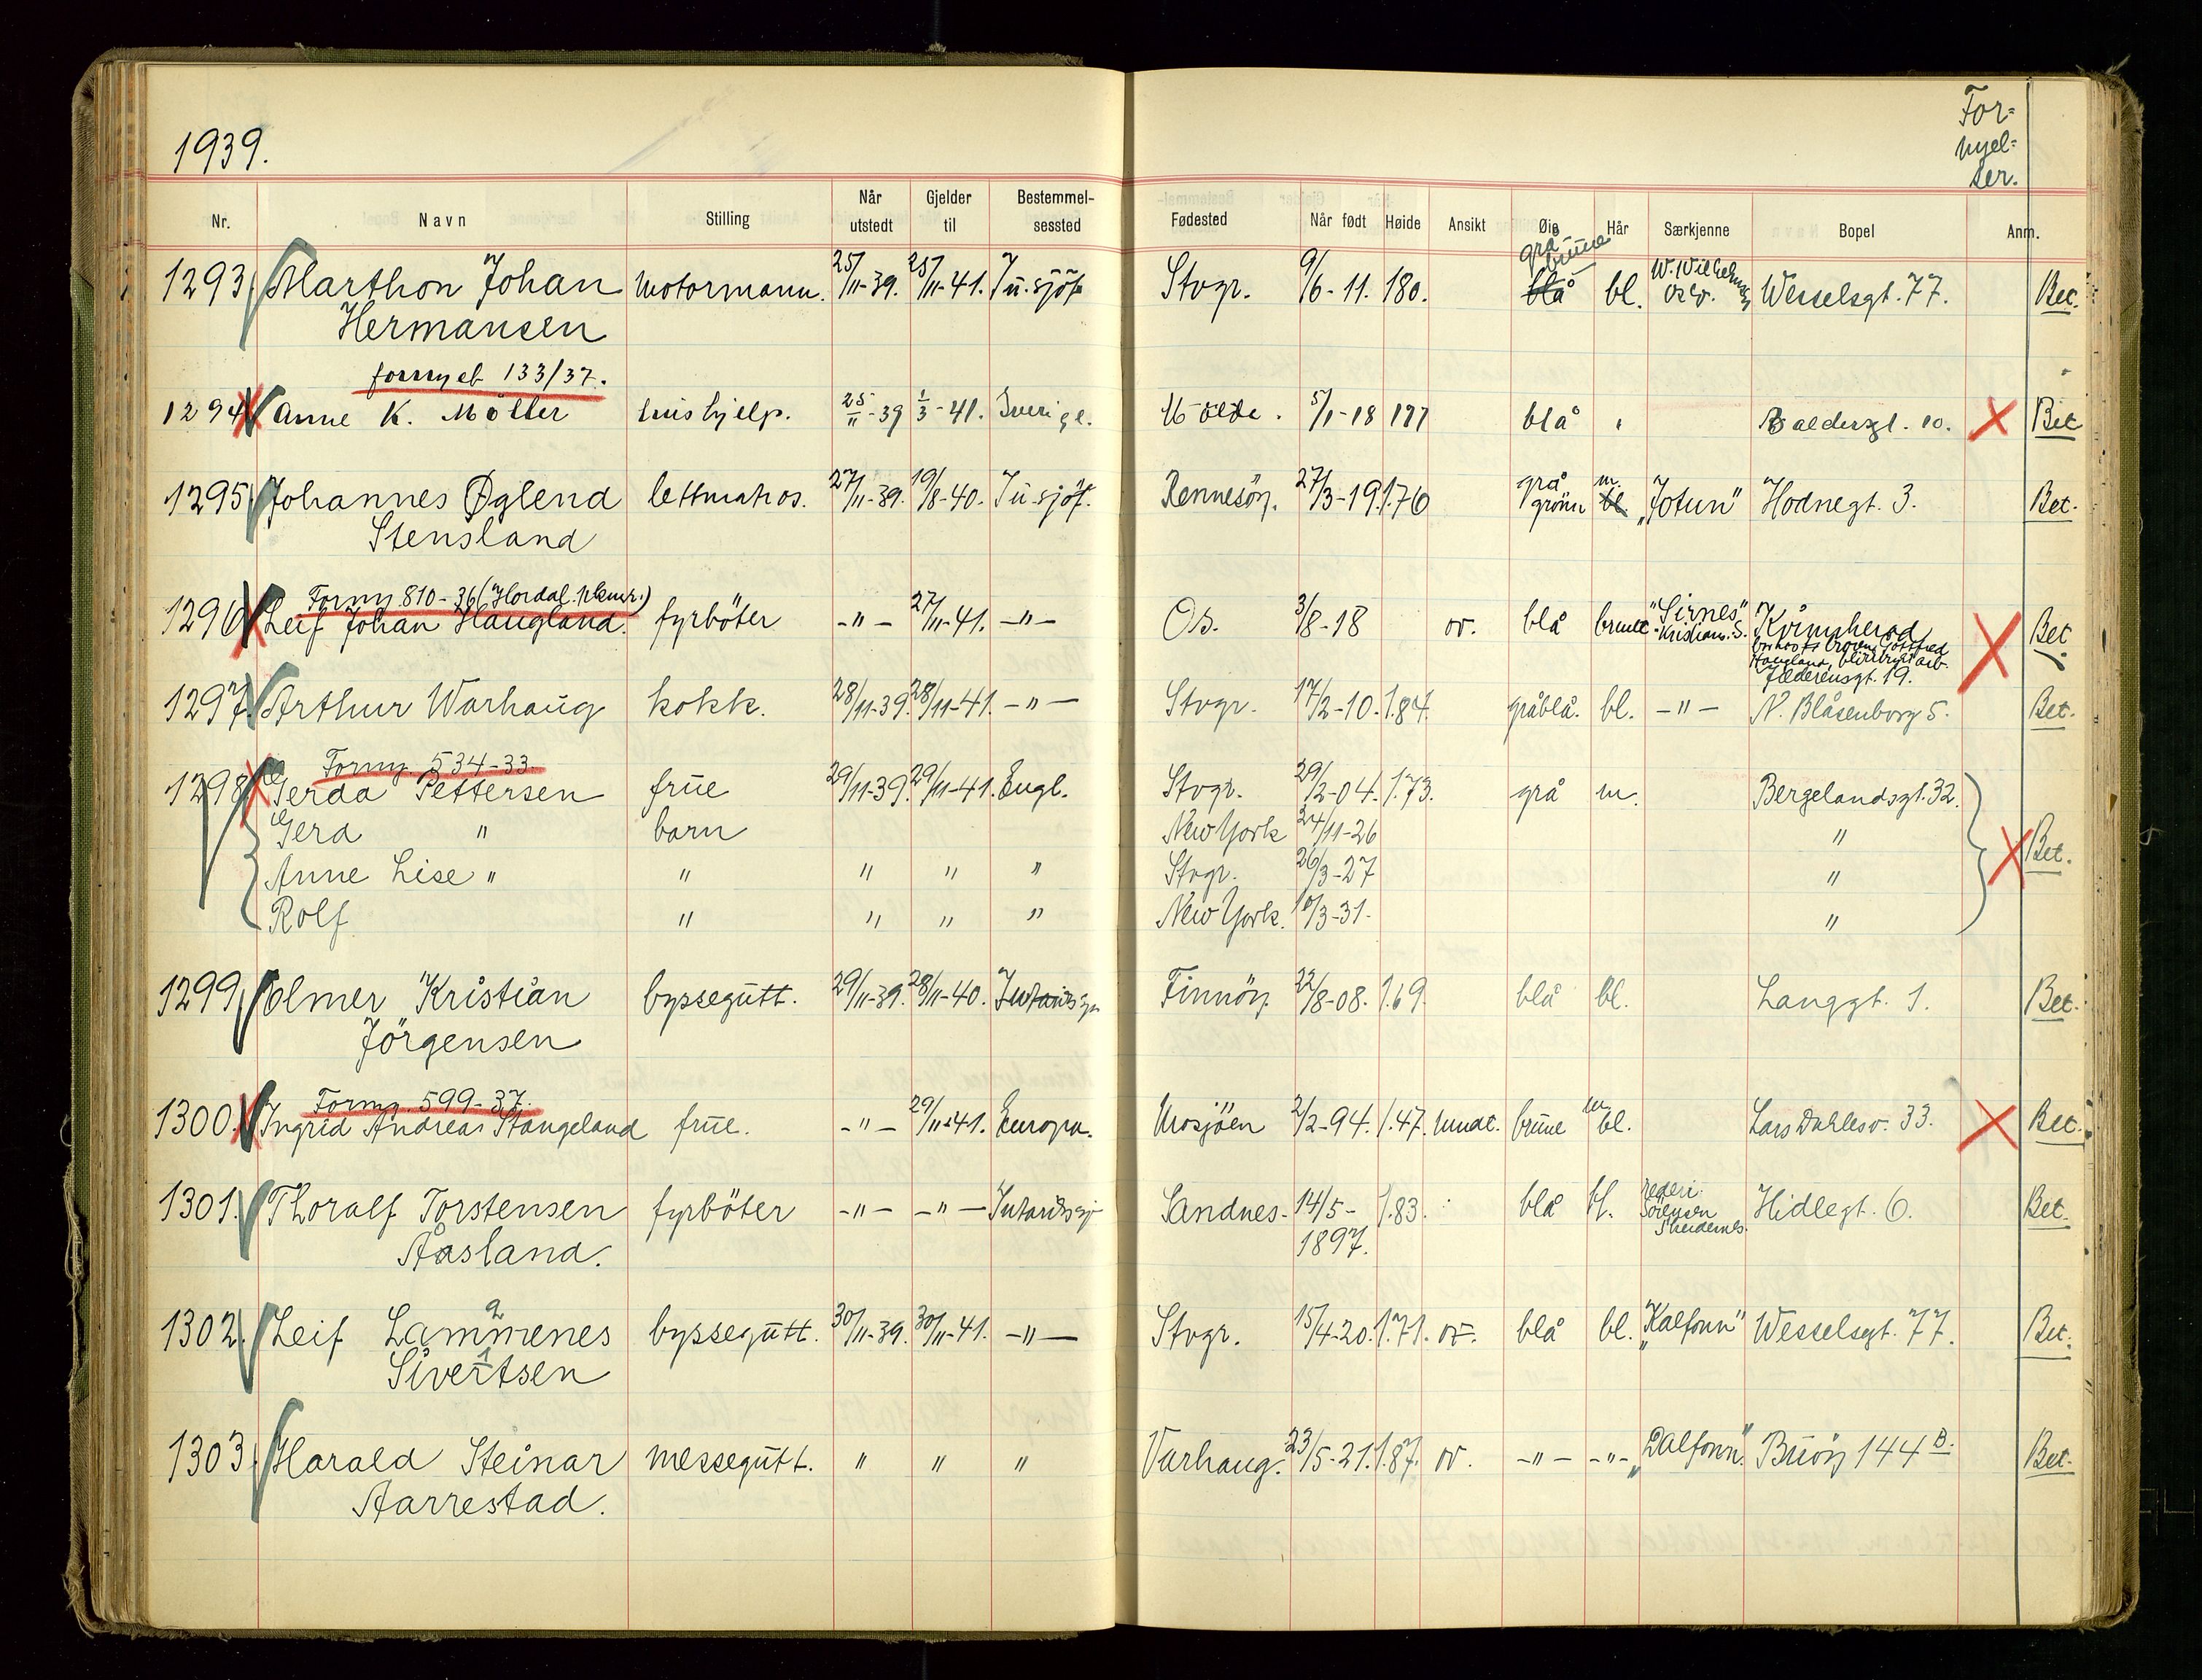 1939.
For-
nyel-
ser.
Nr. Navn Stilling Når utstedt Gjelder til Bestemmel-sessted Fødested Når født Høide Ansikt Øie Hår Særkjenne Bopel Anm.
grå
brune
1293 Marthon Johan motormann. 25/11-39. 25/11-41. Stvgr. 9/6-11. 180. blå bl. W. Wilhelmsen Oslo. Wesselsgt. 77. Bet.
Hermansen
fornyet 133/37.
1294 Anne K. Möller hushjelp. 25/11-39 1/3-41. Sverige. Molde. 5/1-18 177 blå " Baldersgt. 10. Bet
1295 Johannes Øglend lettmatros. 27/11-39. 19/8-40. Rennesöy. 27/3-19. 1.76 grå grönn m. bl. "Jotun" Hodnegt. 3. Bet.
Stensland
Forny. 810-36 (Hordal. pkmr.)
1296 Leif Johan Haugland. fyrböter -"- 27/11-41. -"- Os. 3/8-18 ov. blå brune "Sirnes" Kristians. S. Kvinnherad Bet
Haugland,
Jædrensgt. 19.
1297 Arthur Warhaug kokk. 28/11-39. 28/11-41. -"- Stvgr. 17/2-10. 1.84. gråblå. bl. -"- N. Blåsenborg 5. Bet.
Forny. 534-33.
1298 Gerda Pettersen frue 29/11-39. 29/11-41. Engl. Stvgr. 29/2-04. 1.73. grå m. Bergelandsgt. 32.
Gerd " barn New York 24/11-26 "
Anne Lise " " " " " Stvgr. 26/3-27 " Bet.
Rolf " " " " New York. 10/3-31. "
1299 Olmer Kristian byssegutt. 29/11-39. 28/11-40. Finnöy. 22/8-08. 1.69. blå bl. Langgt. 1. Bet.
Jörgensen
Forny. 599-37.
1300. Ingrid Andrea Stangeland frue. -"- 29/11-41. Europa. Mosjöen 2/2-94. 1.47. rundt. brune m bl. Lars Dahlesv. 33. Bet.
1301. Thoralf Torstensen fyrböter -"- -"- Sandnes. 14/5-1897. 1.83. blå bl. rederi Sörensen Hidlegt. 6. Bet.
Aasland.
1302. Leif Lammenes 2 byssegutt. 30/11-39. 30/11-41. -"- Stvgr. 15/4-20. 1.71. ov. blå bl. "Kalfonn" Wesselsgt. 77. Bet.
Sivertsen 1
1303 Harald Steinar messegutt. " " " Varhaug. 23/5-21. 1.87. ov. -"- -"- "Dalfonn" Buöy 144 B. Bet.
Aarrestad.